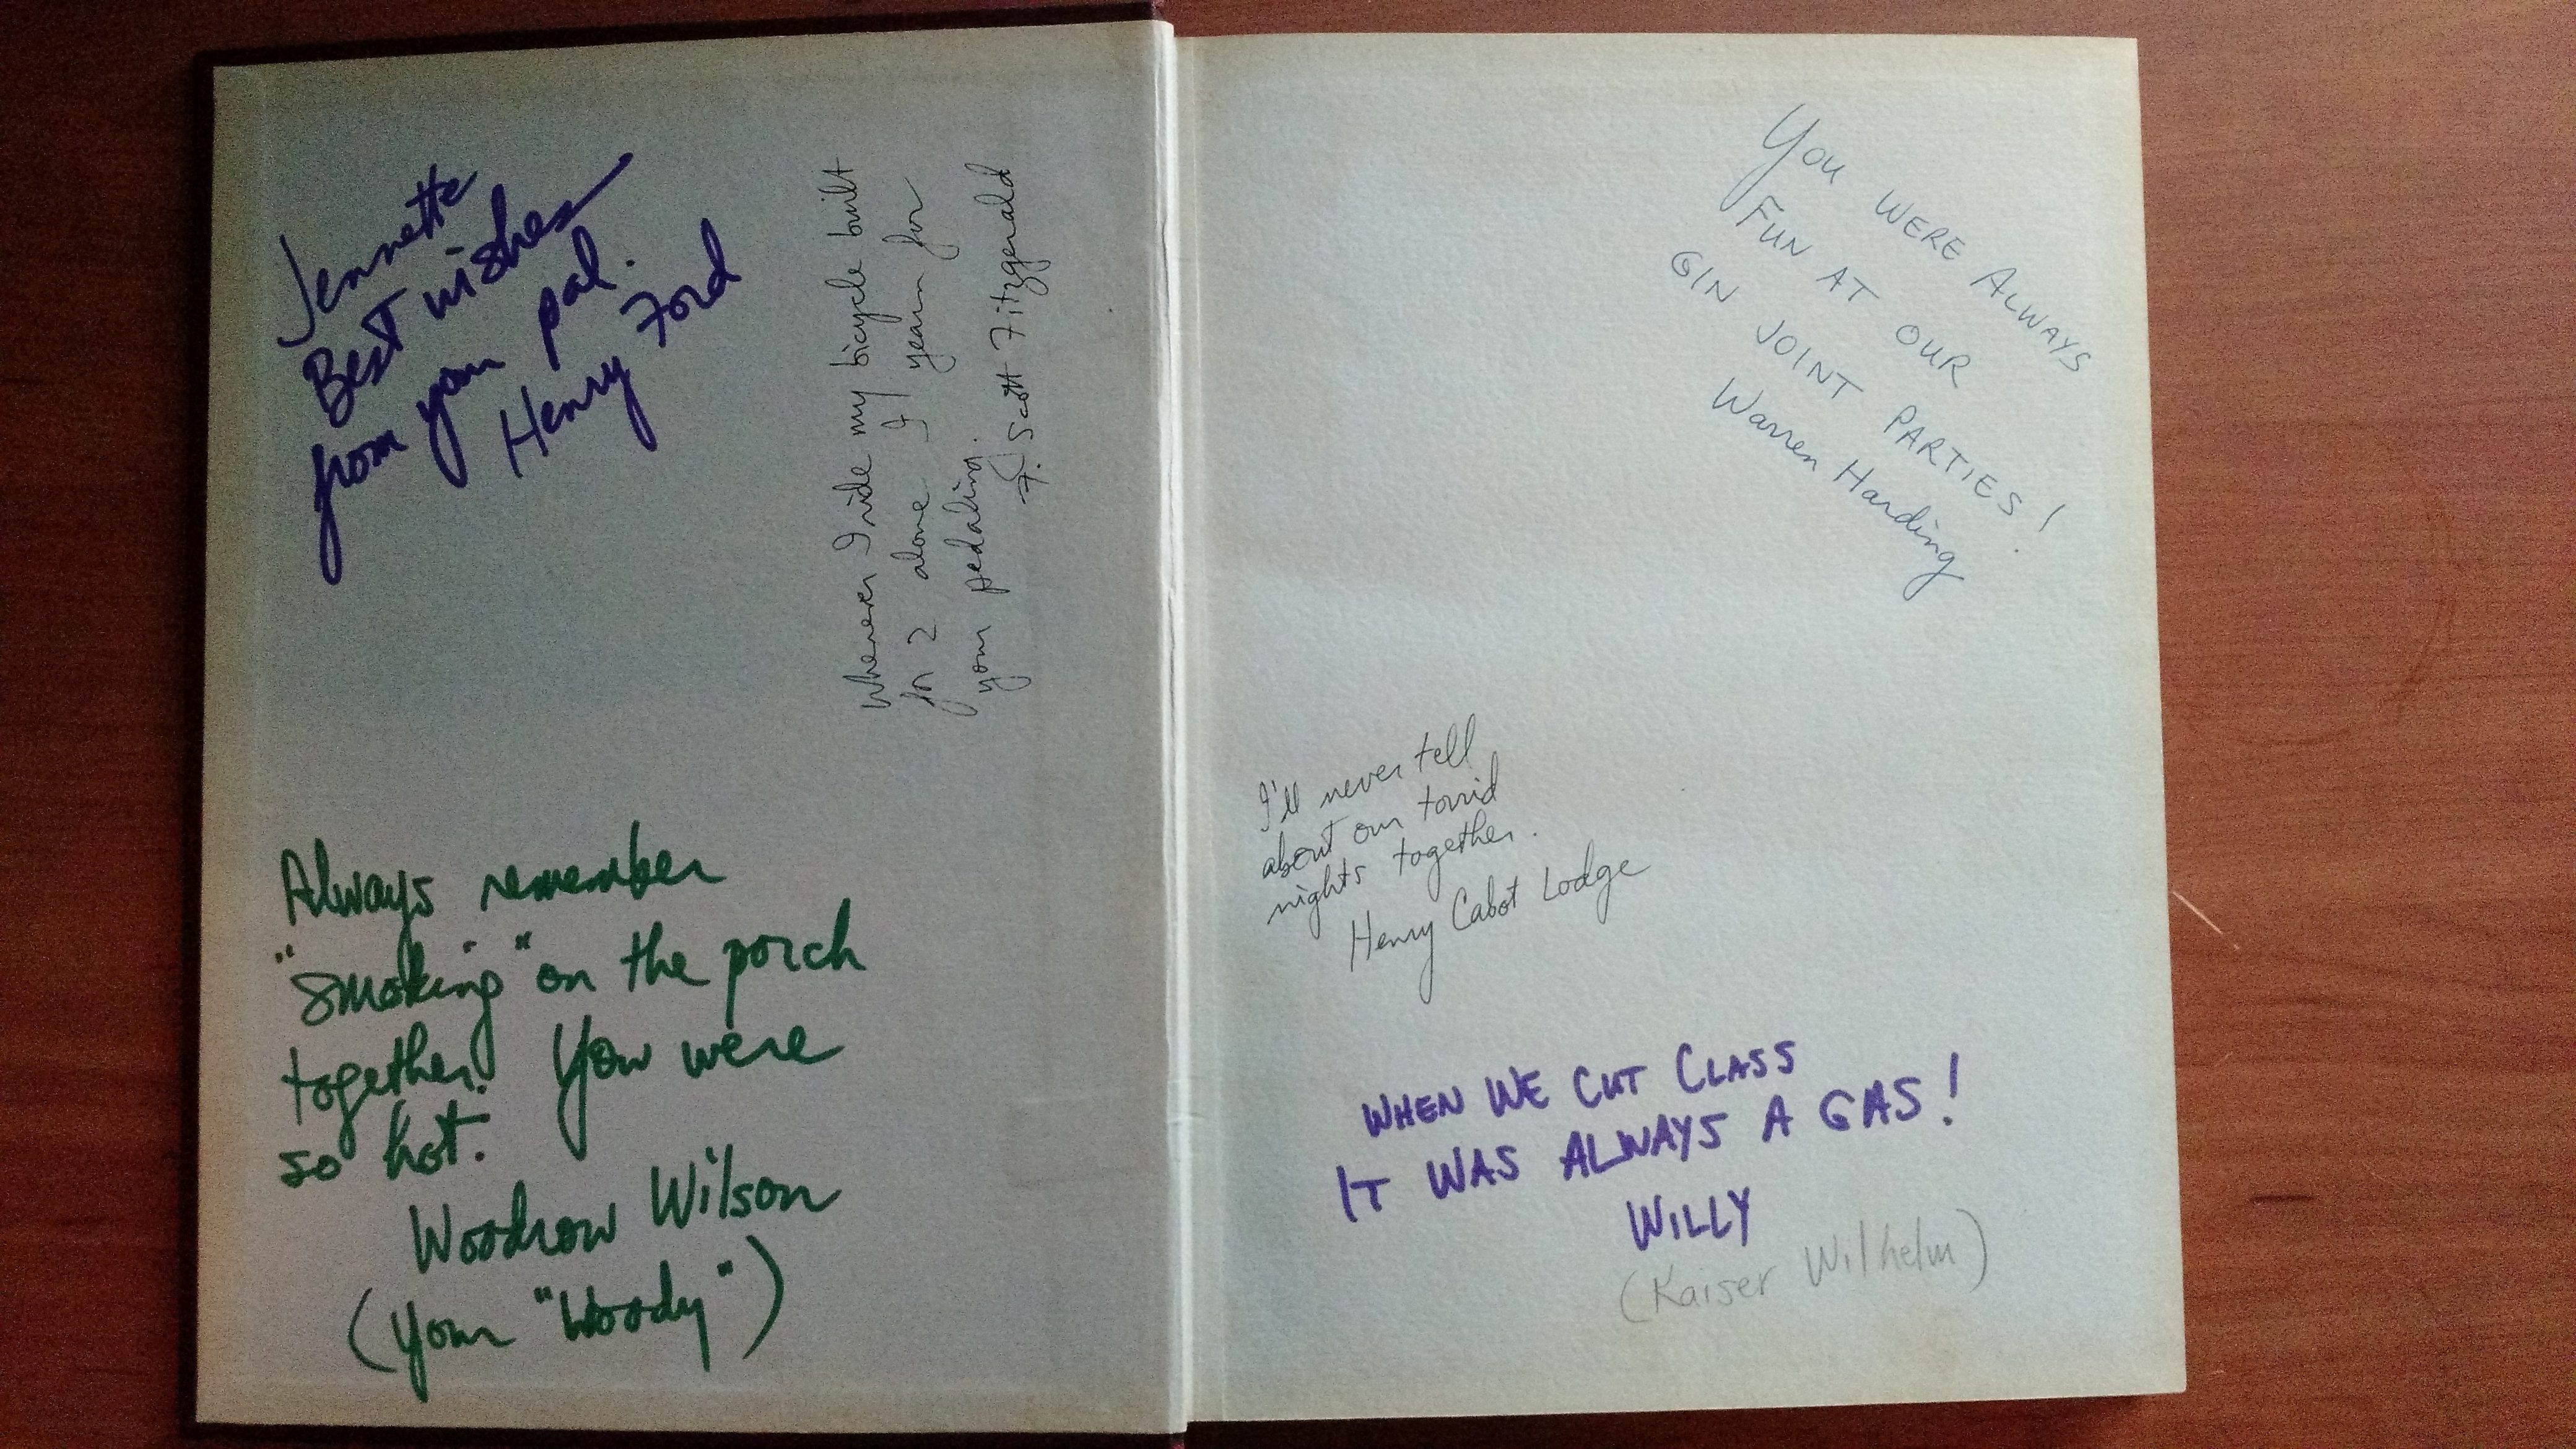 Jennette
Best wishes
from your pal.
Henry Ford
Whenever I ride my bicycle built
for 2 alone I year for
your pedaling.
F. Scott Fitzgerald
Always remember
"smoking" on the porch
together. You were
so hot.
Woodrow Wilson
(your "Woody")
You were Always
Fun at our
Gin Joint Parties!
Warren Harding
I'll never tell
about our torrid
nights together.
Henry Cabot Lodge
When we cut class
It was always a gas!
Willy
(Kaiser Wilhelm)